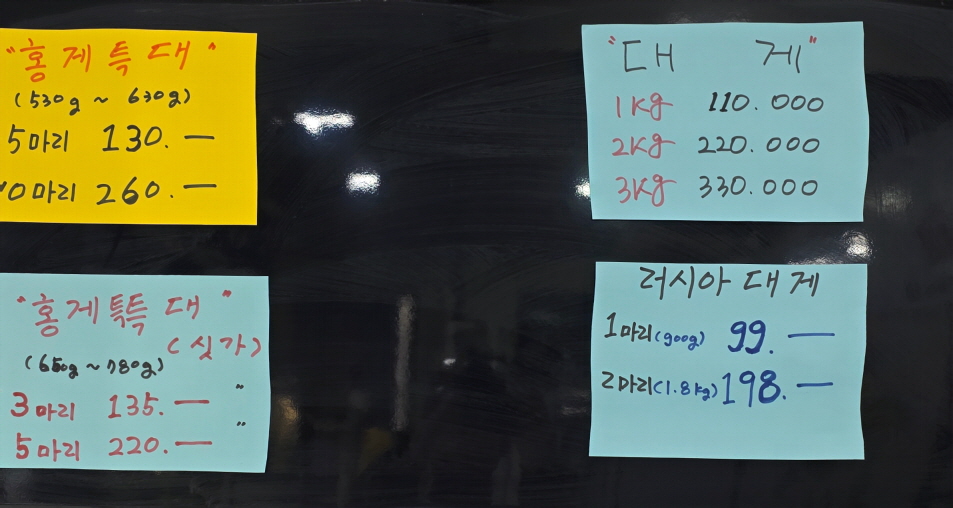 "홍게특대"
(530g ~ 630g)
5마리 130.—
10마리 260.—
"홍게특특대"
(싯가)
(650g ~ 780g)
3마리 135.— "
5마리 220.— "
"대 게"
1Kg 110.000
2Kg 220.000
3Kg 330.000
러시아 대게
1마리(900g) 99.—
2마리(1.8kg) 198.—